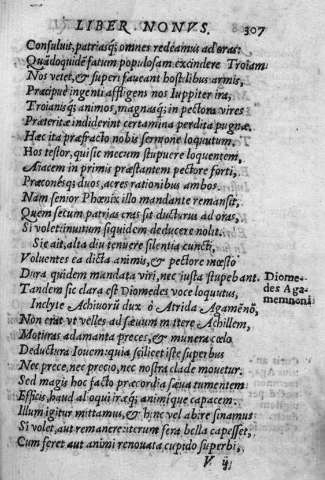 LIBER NONVS. 307
Consuluit, patriasq; omnes redeamus ad oras:
Quãdoquidē fatum populosam excindere Troiam
Nos vetet, & superi faueant hostilibus armis,
Præcipuè ingenti affligens nos Iuppiter ira,
Troianisq; animos, magnasq; in pectora vires
Præteritæ indiderint certamina perdita pugnæ.
Hæc ita præfracto nobis sermone loquutum,
Hos testor, qui sic mecum stupuere loquentem,
Aiacem in primis præstantem pectore forti,
Præconésq; duos, acres rationibus ambos.
Nam senior Phœnix illo mandante remansit,
Quem secum patrias cras sit ducturus ad oras,
Si volet: inuitum siquidem deducere nolit.
Sic ait, alta diu tenuere silentia cuncti,
Voluentes ea dicta animis, & pectore mœsto
Dura quidem mandata viri, nec iusta stupebant.
Tandem sic clara est Diomedes voce loquutus,
Diome-
des Aga-
memnoni
Inclyte Achiuorū dux ô Atrida Agamēnō,
Non erat vt velles ad sæuum mittere Achillem,
Motúras adamanta preces, & munera cœlo
Deductura Iouem: quia scilicet iste superbus
Nec prece, nec precio, nec nostra clade mouetur.
Sed magis hoc facto præcordia sæua tumentem
Efficis, haud aloqui iræq; animique capacem.
Illum igitur mittamus, & hinc vel abire sinamus
Si volet, aut remanere: iterum fera bella capesset,
Cum feret aut animi renouata cupido superbi,
V ij